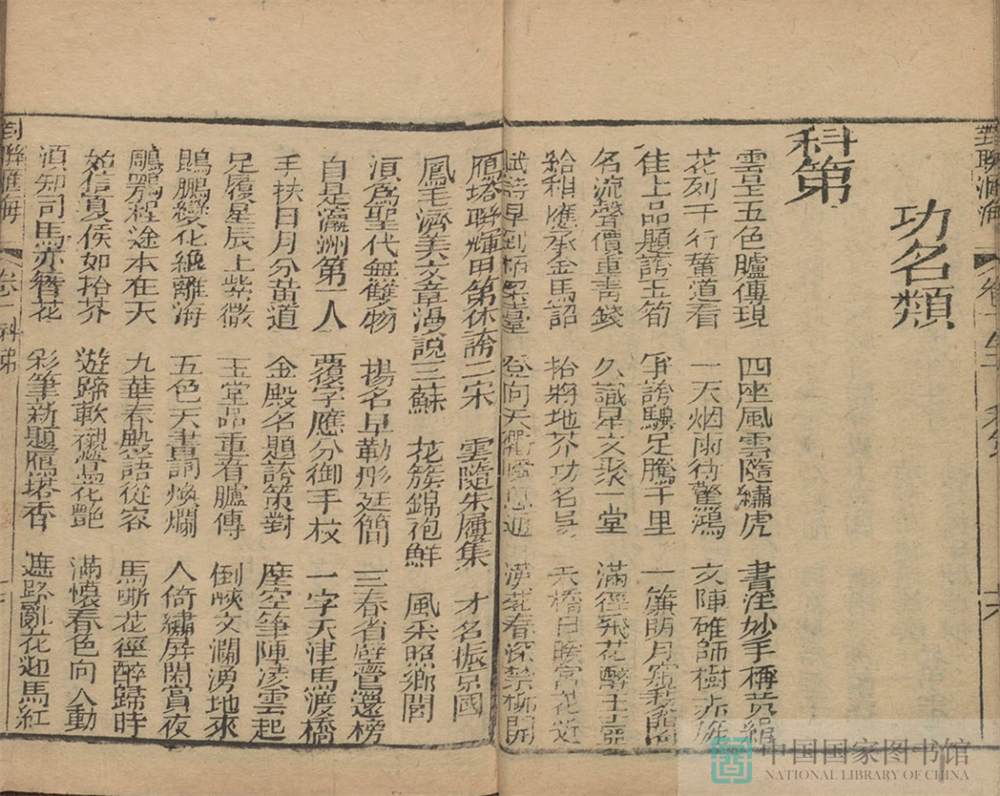 對聯滙海
功名類
科第
雲呈五色臚傳現 四座風雲隨繡虎 書淫妙手稱黃絹
花列千行輦道看 一天烟雨待驚鴻 文陣雄師樹赤
隹上品題誇玉筍 爭誇驥足騰千里 一簾明月
名流聲價重靑錢 久識星文聚一堂 滿徑飛花醉
給札應承金馬詔 拾將地芥功名 天橋日暖宮花近
賦詩早到柏梁臺 登向天衢 春深禁柳開
雁塔聯輝甲第休論二宋 雲隨朱履集 才名振京國
鳳毛濟美文章漫說三蘇 花簇錦袍鮮 風采照鄉閭
須爲聖代無雙物 揚名早勒彤廷簡 三春省壁書還榜
自是瀛洲第一人 覆字應分御手校 一字天津馬渡橋
手扶日月分黃道 金殿名題誇策對 摩空筆陣凌雲起
足履星辰上紫微 玉堂品重看臚傳 倒峽文瀾湧地來
鵾鵬變化絶離海 五色天書詞煥爛 人倚繡屏閑賞夜
鵰鶚程途本在天 九華春殿語從容 馬嘶花徑醉歸時
始信夏侯如拾芥 遊蹄軟襯落花艷 滿懷春色向人動
須知司馬亦簪花 彩筆新題鴈塔香 遮路亂花迎馬紅
對聯滙海 卷一 科第
中国国家图书馆
NATIONAL LIBRARY OF CHINA